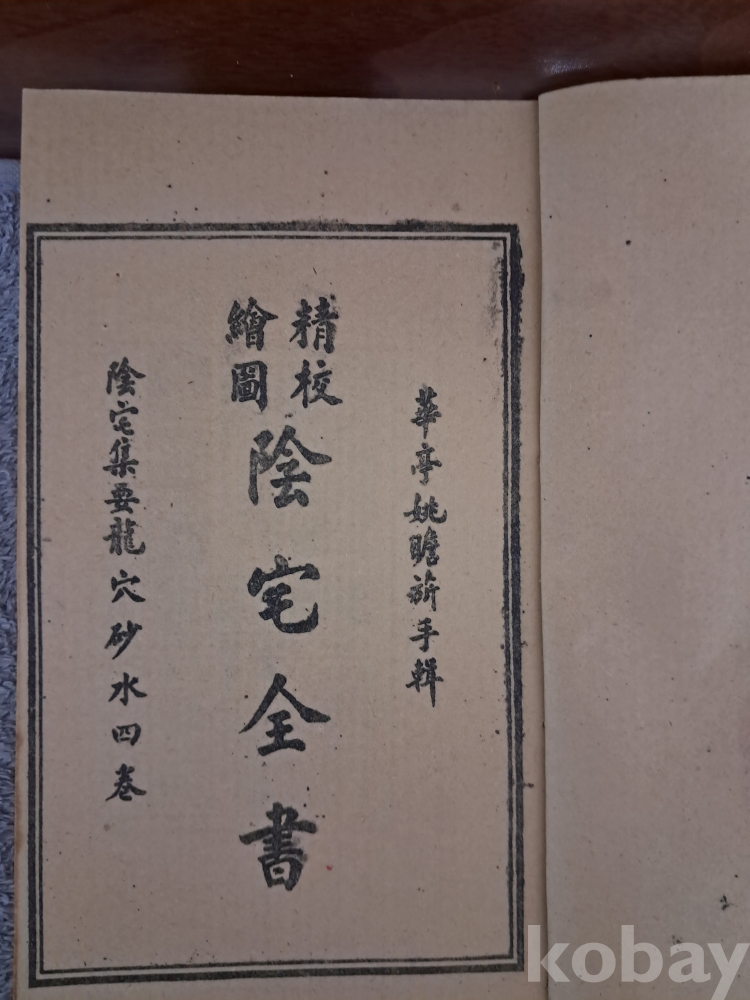 華亭姚瞻旂手輯
精校
繪圖
陰宅全書
陰宅集要龍穴砂水四卷
kobay